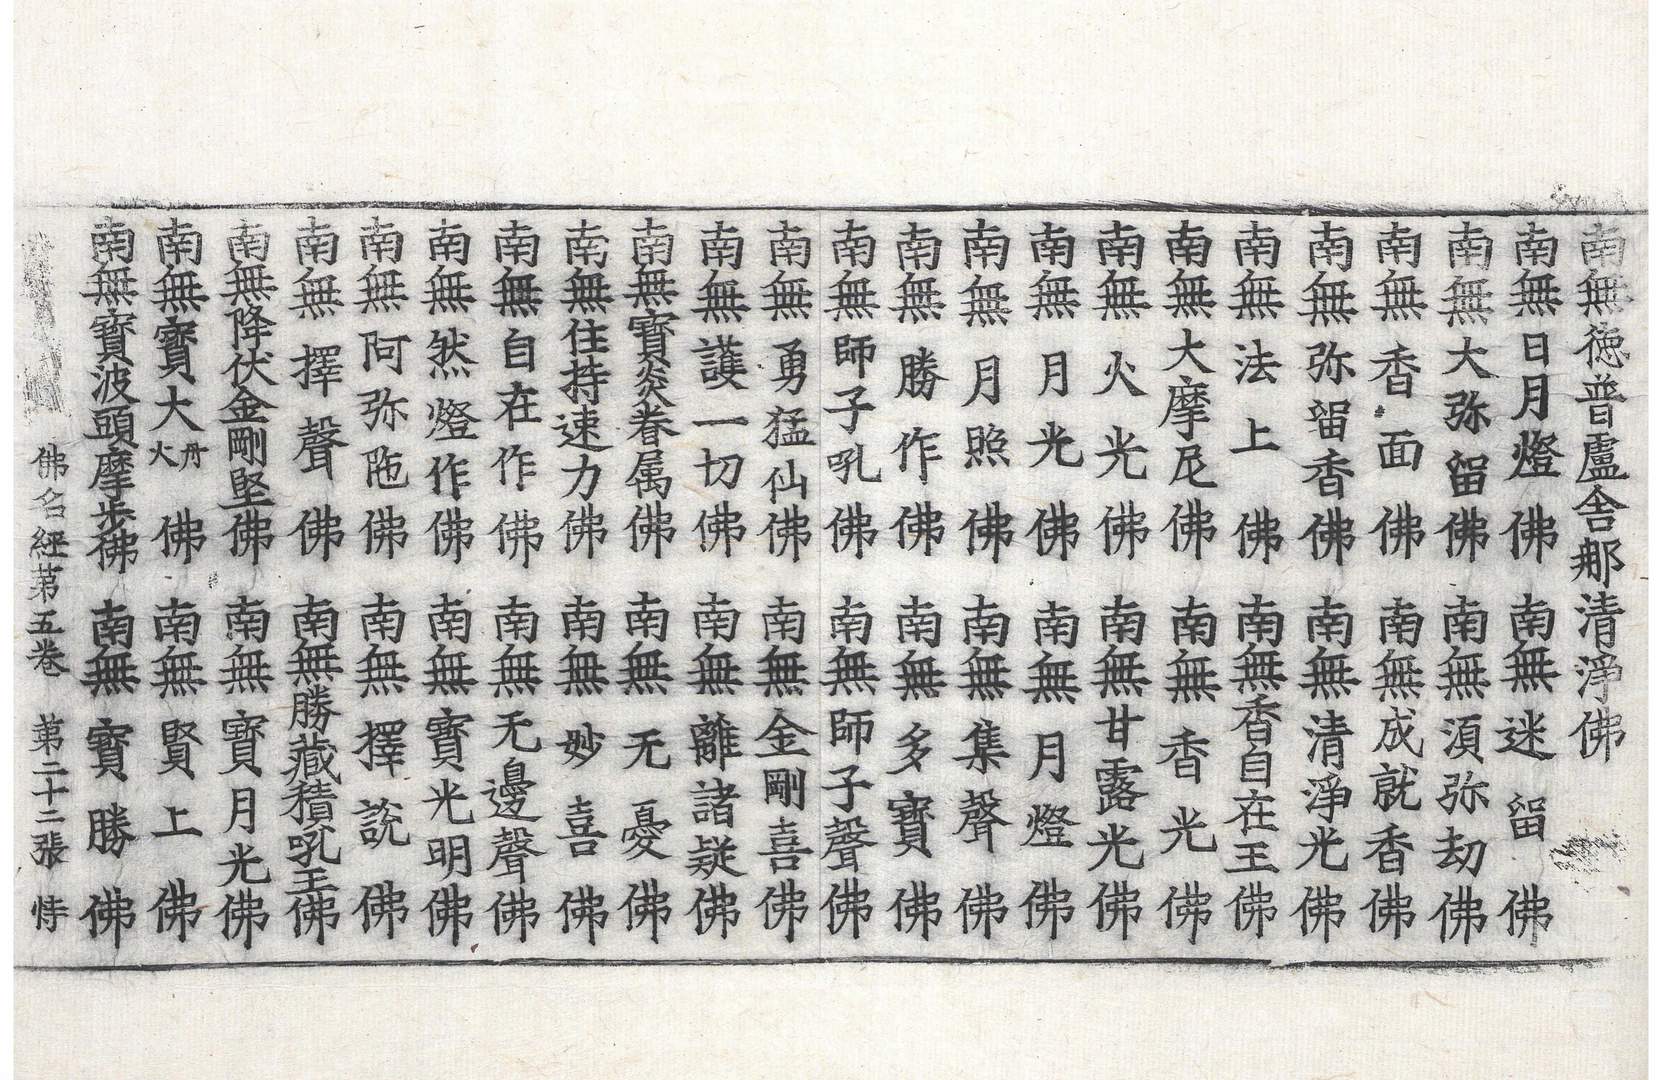 南無德普盧舍那清淨佛
南無日月燈佛 南無迷留佛
南無大弥留佛 南無湏弥劫佛
南無香面佛 南無成就香佛
南無弥留香佛 南無清淨光佛
南無法上佛 南無香自在王佛
南無大摩尼佛 南無香光佛
南無火光佛 南無甘露光佛
南無月光佛 南無月燈佛
南無月照佛 南無集聲佛
南無勝作佛 南無多寶佛
南無師子吼佛 南無師子聲佛
南無勇猛仙佛 南無金剛喜佛
南無護一切佛 南無離諸疑佛
南無寶炎眷属佛 南無无憂佛
南無住持速力佛 南無妙喜佛
南無自在作佛 南無无邊聲佛
南無然燈作佛 南無寶光明佛
南無阿弥陁佛 南無擇說佛
南無擇聲佛 南無勝藏積吼王佛
南無降伏金剛堅佛 南無寶月光佛
南無寶大丹火佛 南無賢上佛
南無寶波頭摩步佛 南無寶勝佛
佛名經苐五卷 苐二十二張 恃